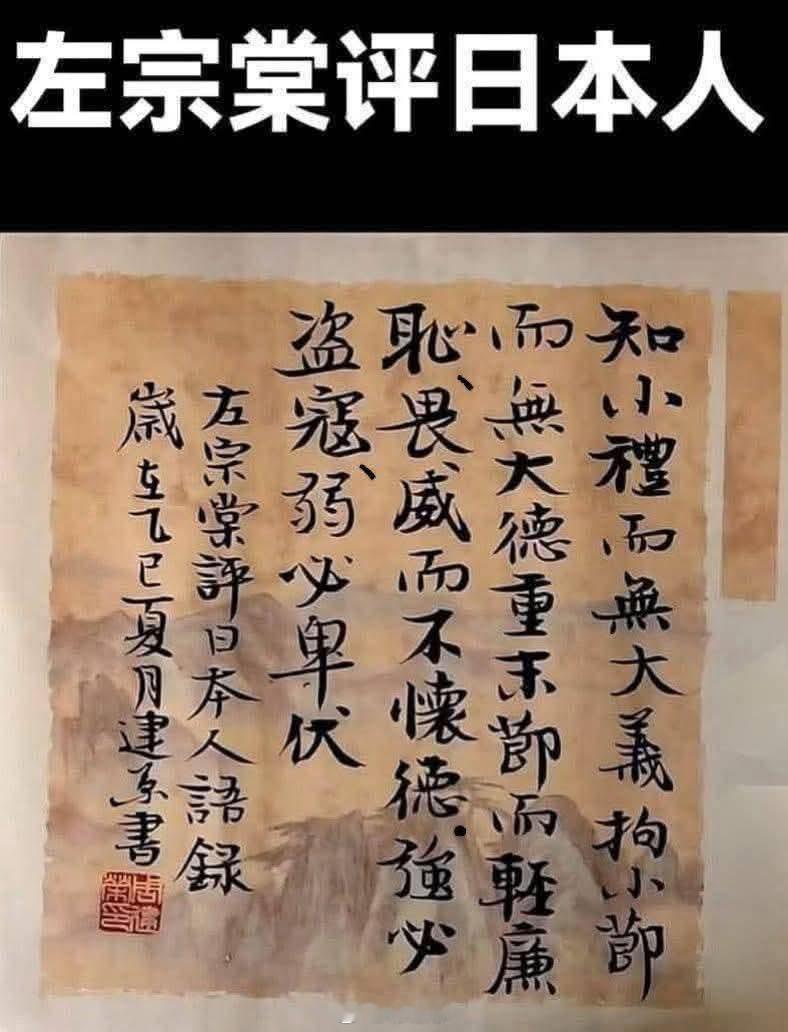 左宗棠评日本人
知小禮而無大義拘小節
而無大德重末節而輕廉
恥、畏威而不懷德.強必
盗寇、弱必卑伏
左宗棠評日本人語録
歲在乙巳夏月建系書